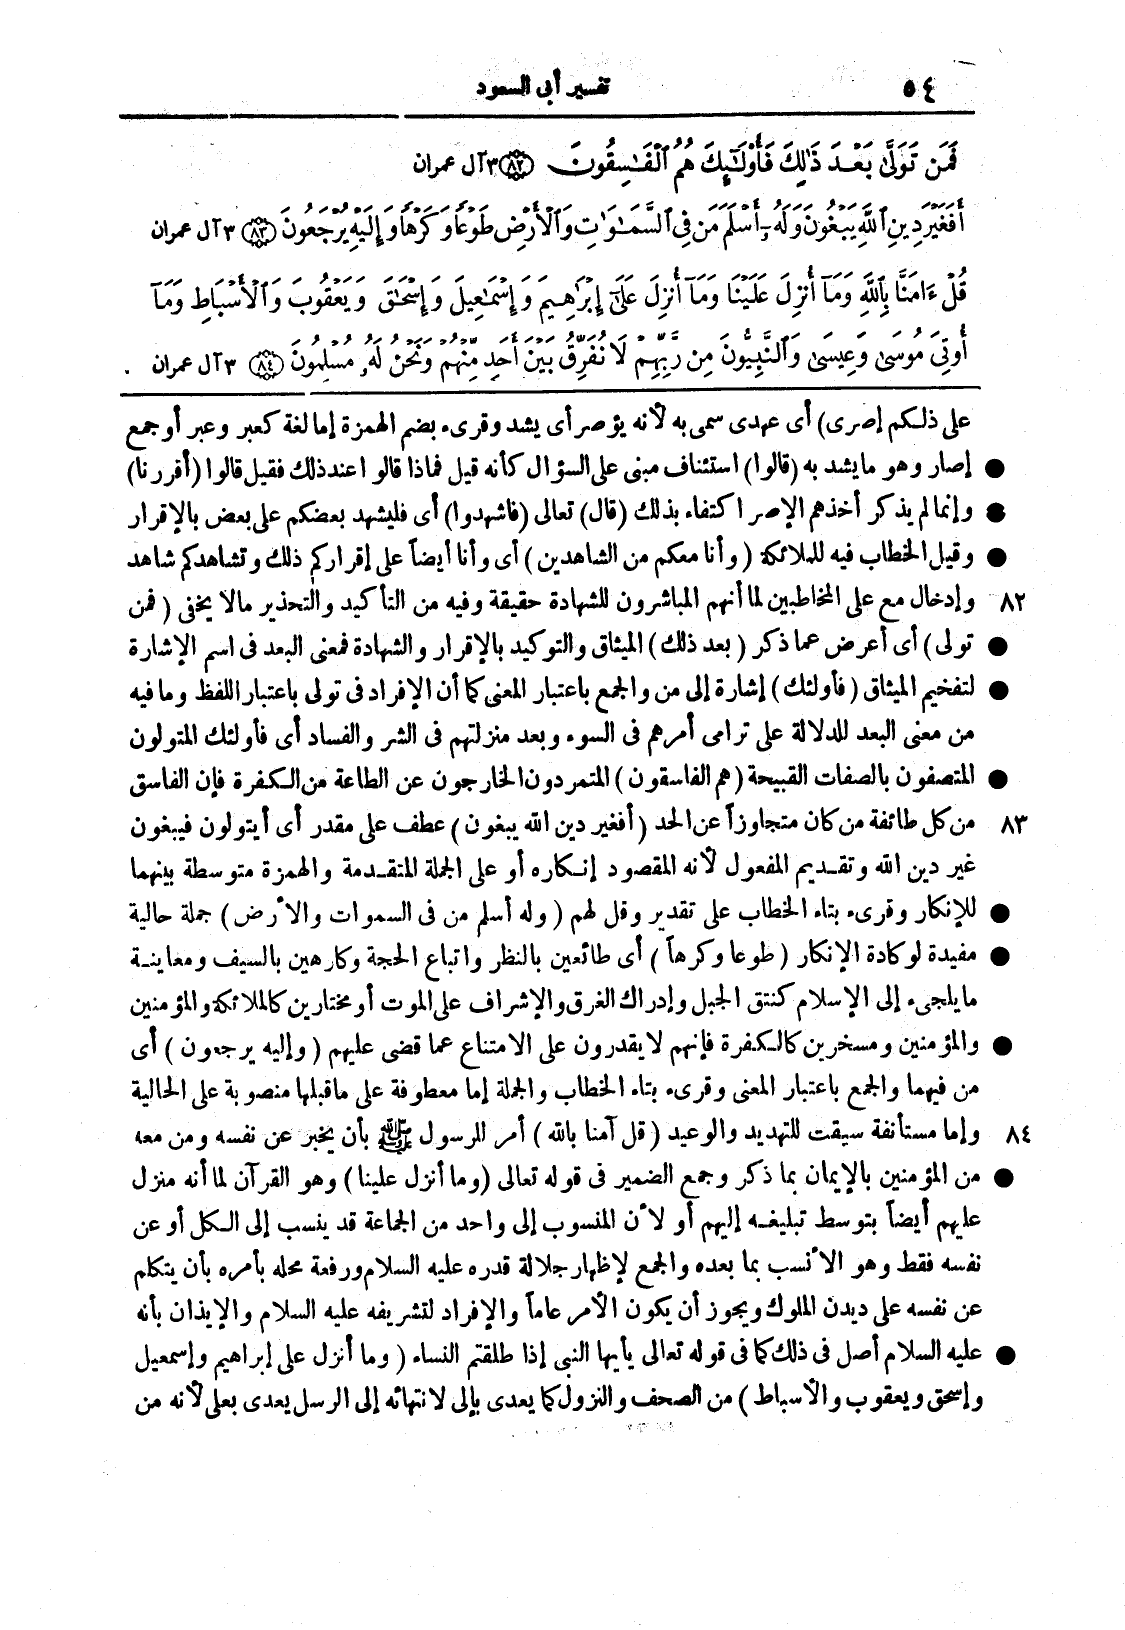 ٥٤ تفسير أبى السعود
فَمَن تَوَلَّىٰ بَعْدَ ذَٰلِكَ فَأُولَٰئِكَ هُمُ الْفَاسِقُونَ ﴿٨٢﴾ ٣ آل عمران
أَفَغَيْرَ دِينِ اللَّهِ يَبْغُونَ وَلَهُ أَسْلَمَ مَن فِي السَّمَاوَاتِ وَالْأَرْضِ طَوْعًا وَكَرْهًا وَإِلَيْهِ يُرْجَعُونَ ﴿٨٣﴾ ٣ آل عمران
قُلْ ءَامَنَّا بِاللَّهِ وَمَا أُنزِلَ عَلَيْنَا وَمَا أُنزِلَ عَلَىٰ إِبْرَاهِيمَ وَإِسْمَاعِيلَ وَإِسْحَاقَ وَيَعْقُوبَ وَالْأَسْبَاطِ وَمَا
أُوتِيَ مُوسَىٰ وَعِيسَىٰ وَالنَّبِيُّونَ مِن رَّبِّهِمْ لَا نُفَرِّقُ بَيْنَ أَحَدٍ مِّنْهُمْ وَنَحْنُ لَهُ مُسْلِمُونَ ﴿٨٤﴾ ٣ آل عمران .
على ذلكم إصرى) أى عهدى سمى به لأنه يؤصر أى يشد وقرىء بضم الهمزة إما لغة كعبر وعبر أو جمع
● إصار وهو ما يشد به (قالوا) استئناف مبنى على السؤال كأنه قيل فماذا قالوا عند ذلك فقيل قالوا (أقررنا)
● وإنما لم يذكر أخذهم الإصر اكتفاء بذلك (قال) تعالى (فاشهدوا) أى فليشهد بعضكم على بعض بالإقرار
● وقيل الخطاب فيه للملائكة ( وأنا معكم من الشاهدين ) أى وأنا أيضاً على إقراركم ذلك وتشاهدكم شاهد
٨٢ وإدخال مع على المخاطبين لما أنهم المباشرون للشهادة حقيقة وفيه من التأكيد والتحذير مالا يخفى ( فمن
● تولى ) أى أعرض عما ذكر ( بعد ذلك ) الميثاق والتوكيد بالإقرار والشهادة فمعنى البعد فى اسم الإشارة
● لتفخيم الميثاق ( فأولئك ) إشارة إلى من والجمع باعتبار المعنى كما أن الإفراد فى تولى باعتبار اللفظ وما فيه
من معنى البعد للدلالة على ترامى أمرهم فى السوء وبعد منزلتهم فى الشر والفساد أى فأولئك المتولون
● المتصفون بالصفات القبيحة ( هم الفاسقون ) المتمردون الخارجون عن الطاعة من الكفرة فإن الفاسق
٨٣ من كل طائفة من كان متجاوزاً عن الحد ( أفغير دين الله يبغون ) عطف على مقدر أى أيتولون فيبغون
غير دين الله وتقديم المفعول لأنه المقصود إنكاره أو على الجملة المتقدمة والهمزة متوسطة بينهما
● للإنكار وقرىء بتاء الخطاب على تقدير وقل لهم ( وله أسلم من فى السموات والأرض ) جملة حالية
● مفيدة لوكادة الإنكار ( طوعا وكرهاً ) أى طائعين بالنظر واتباع الحجة وكارهين بالسيف ومعاينة
ما يلجىء إلى الإسلام كنتق الجبل وإدراك الغرق والإشراف على الموت أو مختارين كالملائكة والمؤمنين
● والمؤمنين ومسخرين كالكفرة فإنهم لا يقدرون على الامتناع عما قضى عليهم ( وإليه يرجعون ) أى
من فيهما والجمع باعتبار المعنى وقرىء بتاء الخطاب والجملة إما معطوفة على ماقبلها منصوبة على الحالية
٨٤ وإما مستأنفة سيقت للتهديد والوعيد ( قل آمنا بالله ) أمر للرسول ﷺ بأن يخبر عن نفسه ومن معه
● من المؤمنين بالإيمان بما ذكر وجمع الضمير فى قوله تعالى (وما أنزل علينا) وهو القرآن لما أنه منزل
عليهم أيضاً بتوسط تبليغه إليهم أو لأن المنسوب إلى واحد من الجماعة قد ينسب إلى الكل أو عن
نفسه فقط وهو الأنسب بما بعده والجمع لإظهار جلالة قدره عليه السلام ورفعة محله بأمره بأن يتكلم
عن نفسه على ديدن الملوك ويجوز أن يكون الأمر عاماً والإفراد لتشريفه عليه السلام والإيذان بأنه
● عليه السلام أصل فى ذلك كما فى قوله تعالى يأيها النبى إذا طلقتم النساء ( وما أنزل على إبراهيم وإسمعيل
وإسحق ويعقوب والأسباط ) من الصحف والنزول كما يعدى بإلى لانتهائه إلى الرسل يعدى بعلى لأنه من